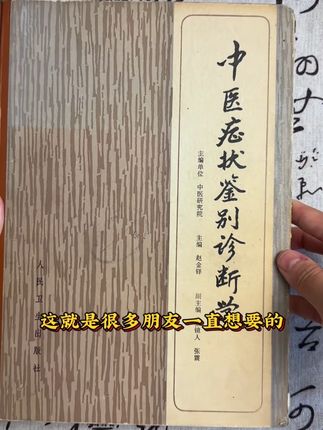 中医症状鉴别诊断学
主编单位 中医研究院
主编 赵金铎
人民卫生出版社
这就是很多朋友一直想要的